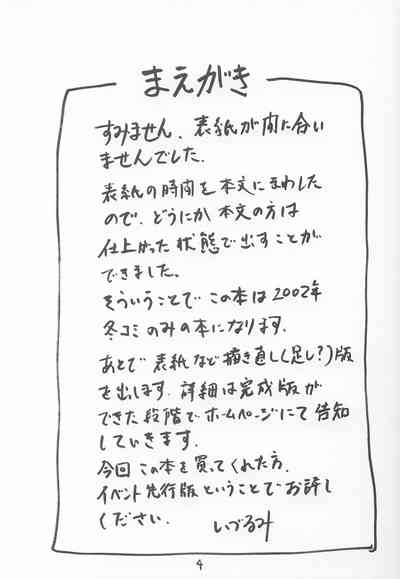 まえがき
すみません、表紙が間に合い
ませんでした.
表紙の時間を本文にまわした
ので、どうにか本文の方は
仕上がった状態で出すことが
できました、
そういうことでこの本は2002年
冬コミのみの本になります.
あとで表紙など描き直し(足し?)版
を出します.詳細は完成版が
できた段階でホームページにて告知
していきます.
今回この本を買ってくれた方.
イベント先行版ということでお許し
ください.
いづるみ
4